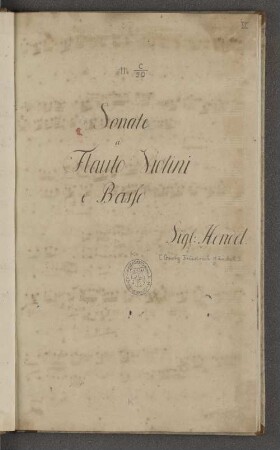 II
M C/30
Sonate
a
Flauto Violini
e Basso
Sigl: Hendel
(Georg Friedrich Händel)